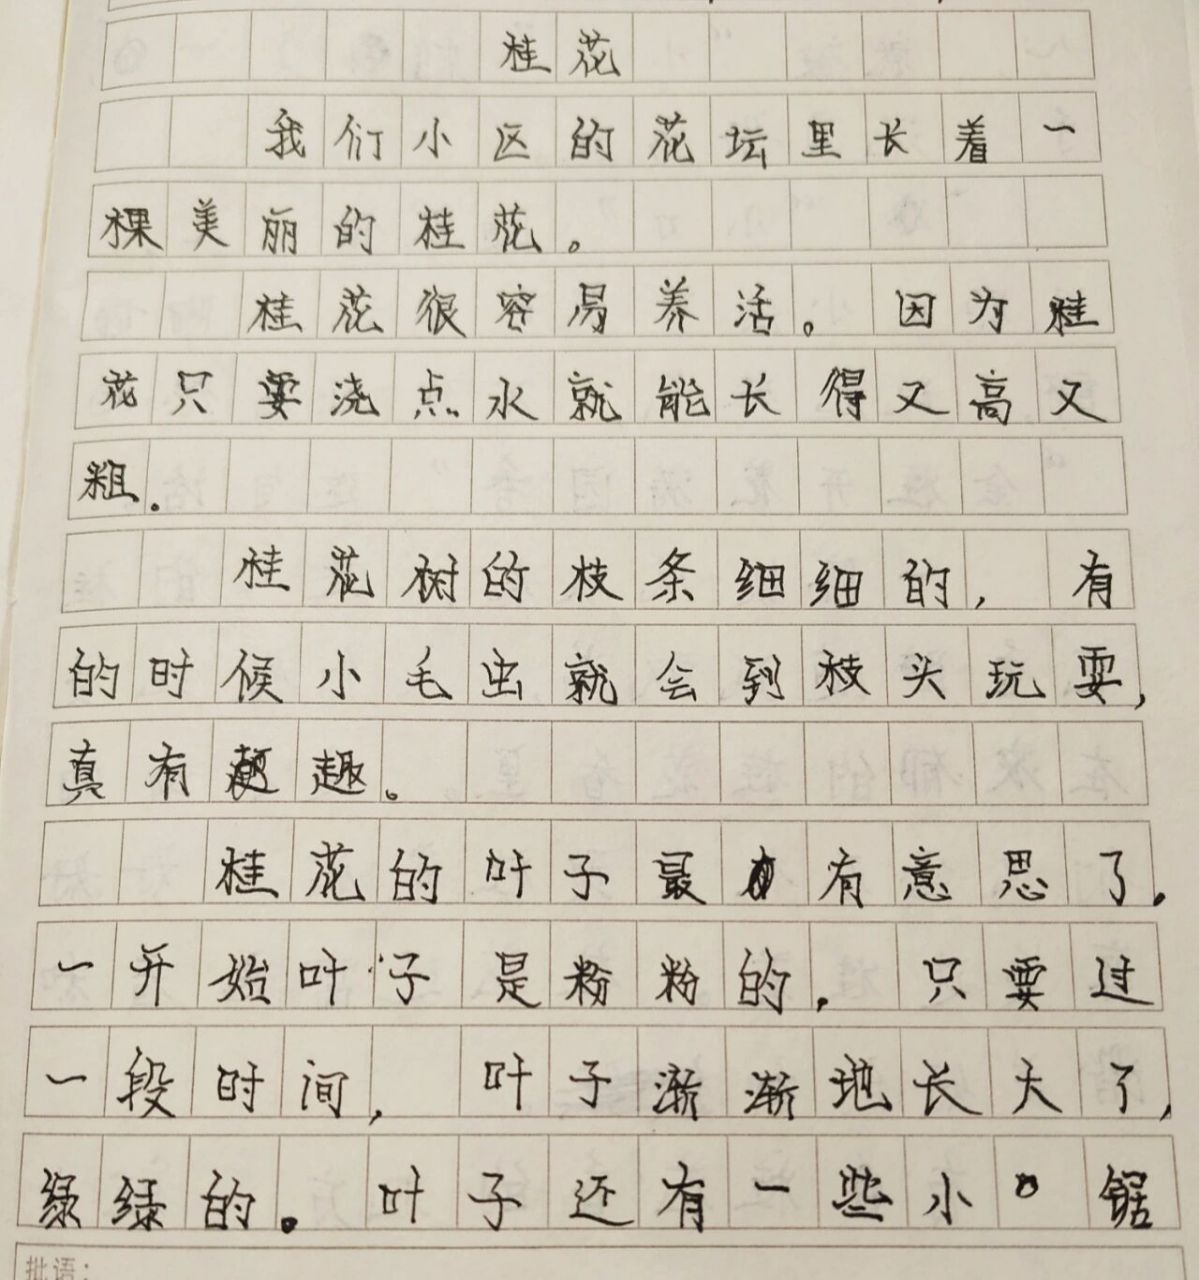 桂花
我们小区的花坛里长着一
棵美丽的桂花。
桂花很容易养活。因为桂
花只要浇点水就能长得又高又
粗.
桂花树的枝条细细的,有
的时候小毛虫就会到枝头玩耍,
真有趣。
桂花的叶子最有意思了.
一开始叶子是粉粉的.只要过
一段时间,叶子渐渐地长大了,
绿绿的。叶子还有一些小锯
批语: